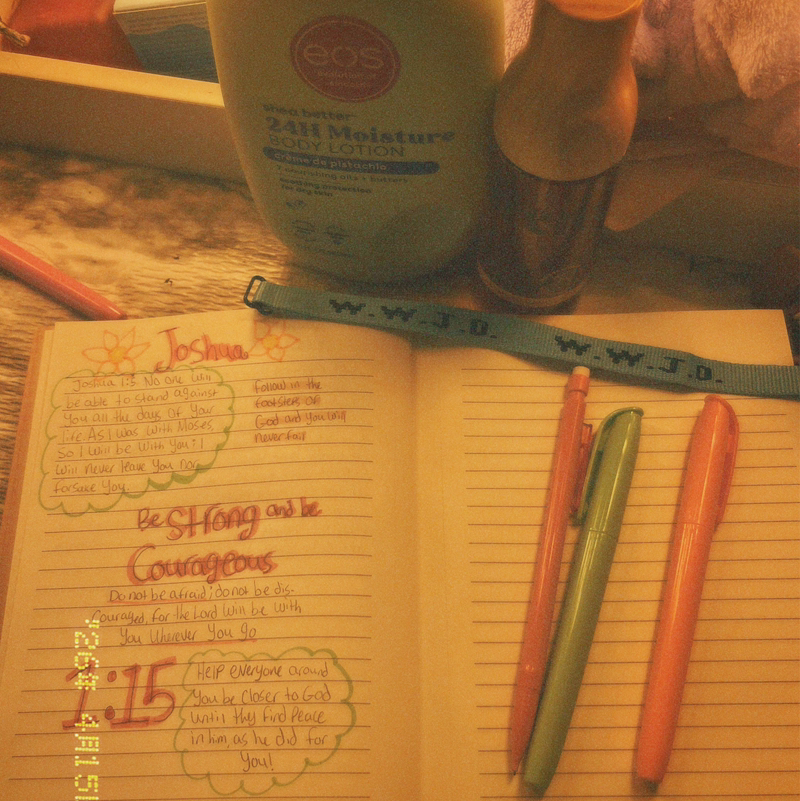 eos
shea better
24H Moisture
BODY LOTION
crème de pistachio
7 nourishing oils + butters
for dry skin
W.W.J.D. W.W.J.D.
Joshua
Joshua 1:5 No one will
be able to stand against
you all the days of your
life. As I was with Moses,
So I will be with you; I
will never leave you nor
forsake you.
Follow in the
footsteps of
God and you will
never fail
Be Strong and be
Courageous
Do not be afraid; do not be dis-
couraged, for the Lord will be with
you wherever you go
1:15
Help everyone around
you be closer to God
until they find peace
in him, as he did for
you!